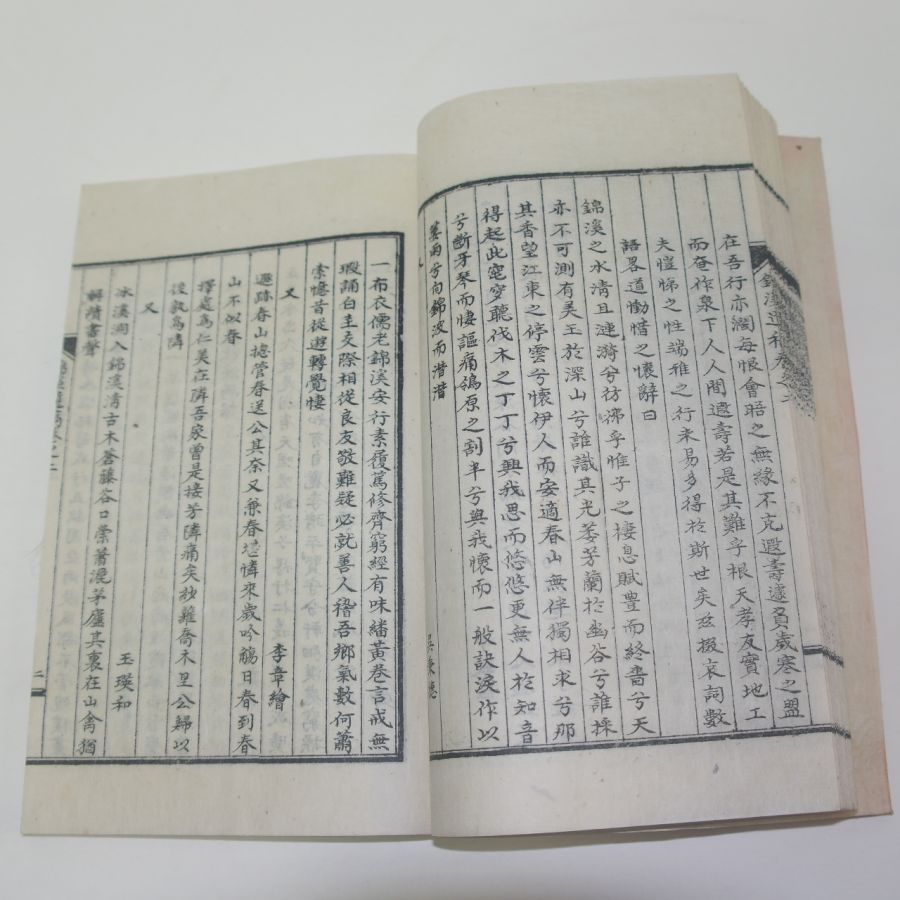 在吾行亦濶每恨會晤之無緣不克遐壽遽負歲寒之盟
而奄作泉下人人間遐壽若是其難乎根天孝友實地工
夫愷悌之性端雅之行未易多得於斯世矣玆掇哀詞數
語畧道慟惜之懷辭曰
錦溪之水淸且漣漪兮彷彿乎惟子之棲息賦豊而終嗇兮天
亦不可測有美玉於深山兮誰識其光萎芳蘭於幽谷兮誰採
其香望江東之停雲兮懷伊人而安適春山無伴獨相求兮那
得起此窀穸聽伐木之丁丁兮興我思而悠悠更無人於知音
兮斷牙琴而悽謳痛鴒原之割半兮與我懷而一般訣淚作以
蔞雨兮向錦波而潸潸
一布衣儒老錦溪安行素履篤修齊窮經有味繙黃卷言戒無
瑕誦白圭交際相從良友敬難疑必就善人稽吾鄕氣數何蕭
索憶昔從遊轉覺悽
又 李章繪
遯跡春山摠管春送公其奈又兼春堪憐來歲吟觴日春到春
山不似春
擇處爲仁美在隣吾家曾是接芳隣痛矣紗籬喬木里公歸以
後孰爲隣
又 玉瑛和
冰溪洞入錦溪淸古木蒼藤谷口縈蕭灑茅廬其裏在山禽猶
解讀書聲
二